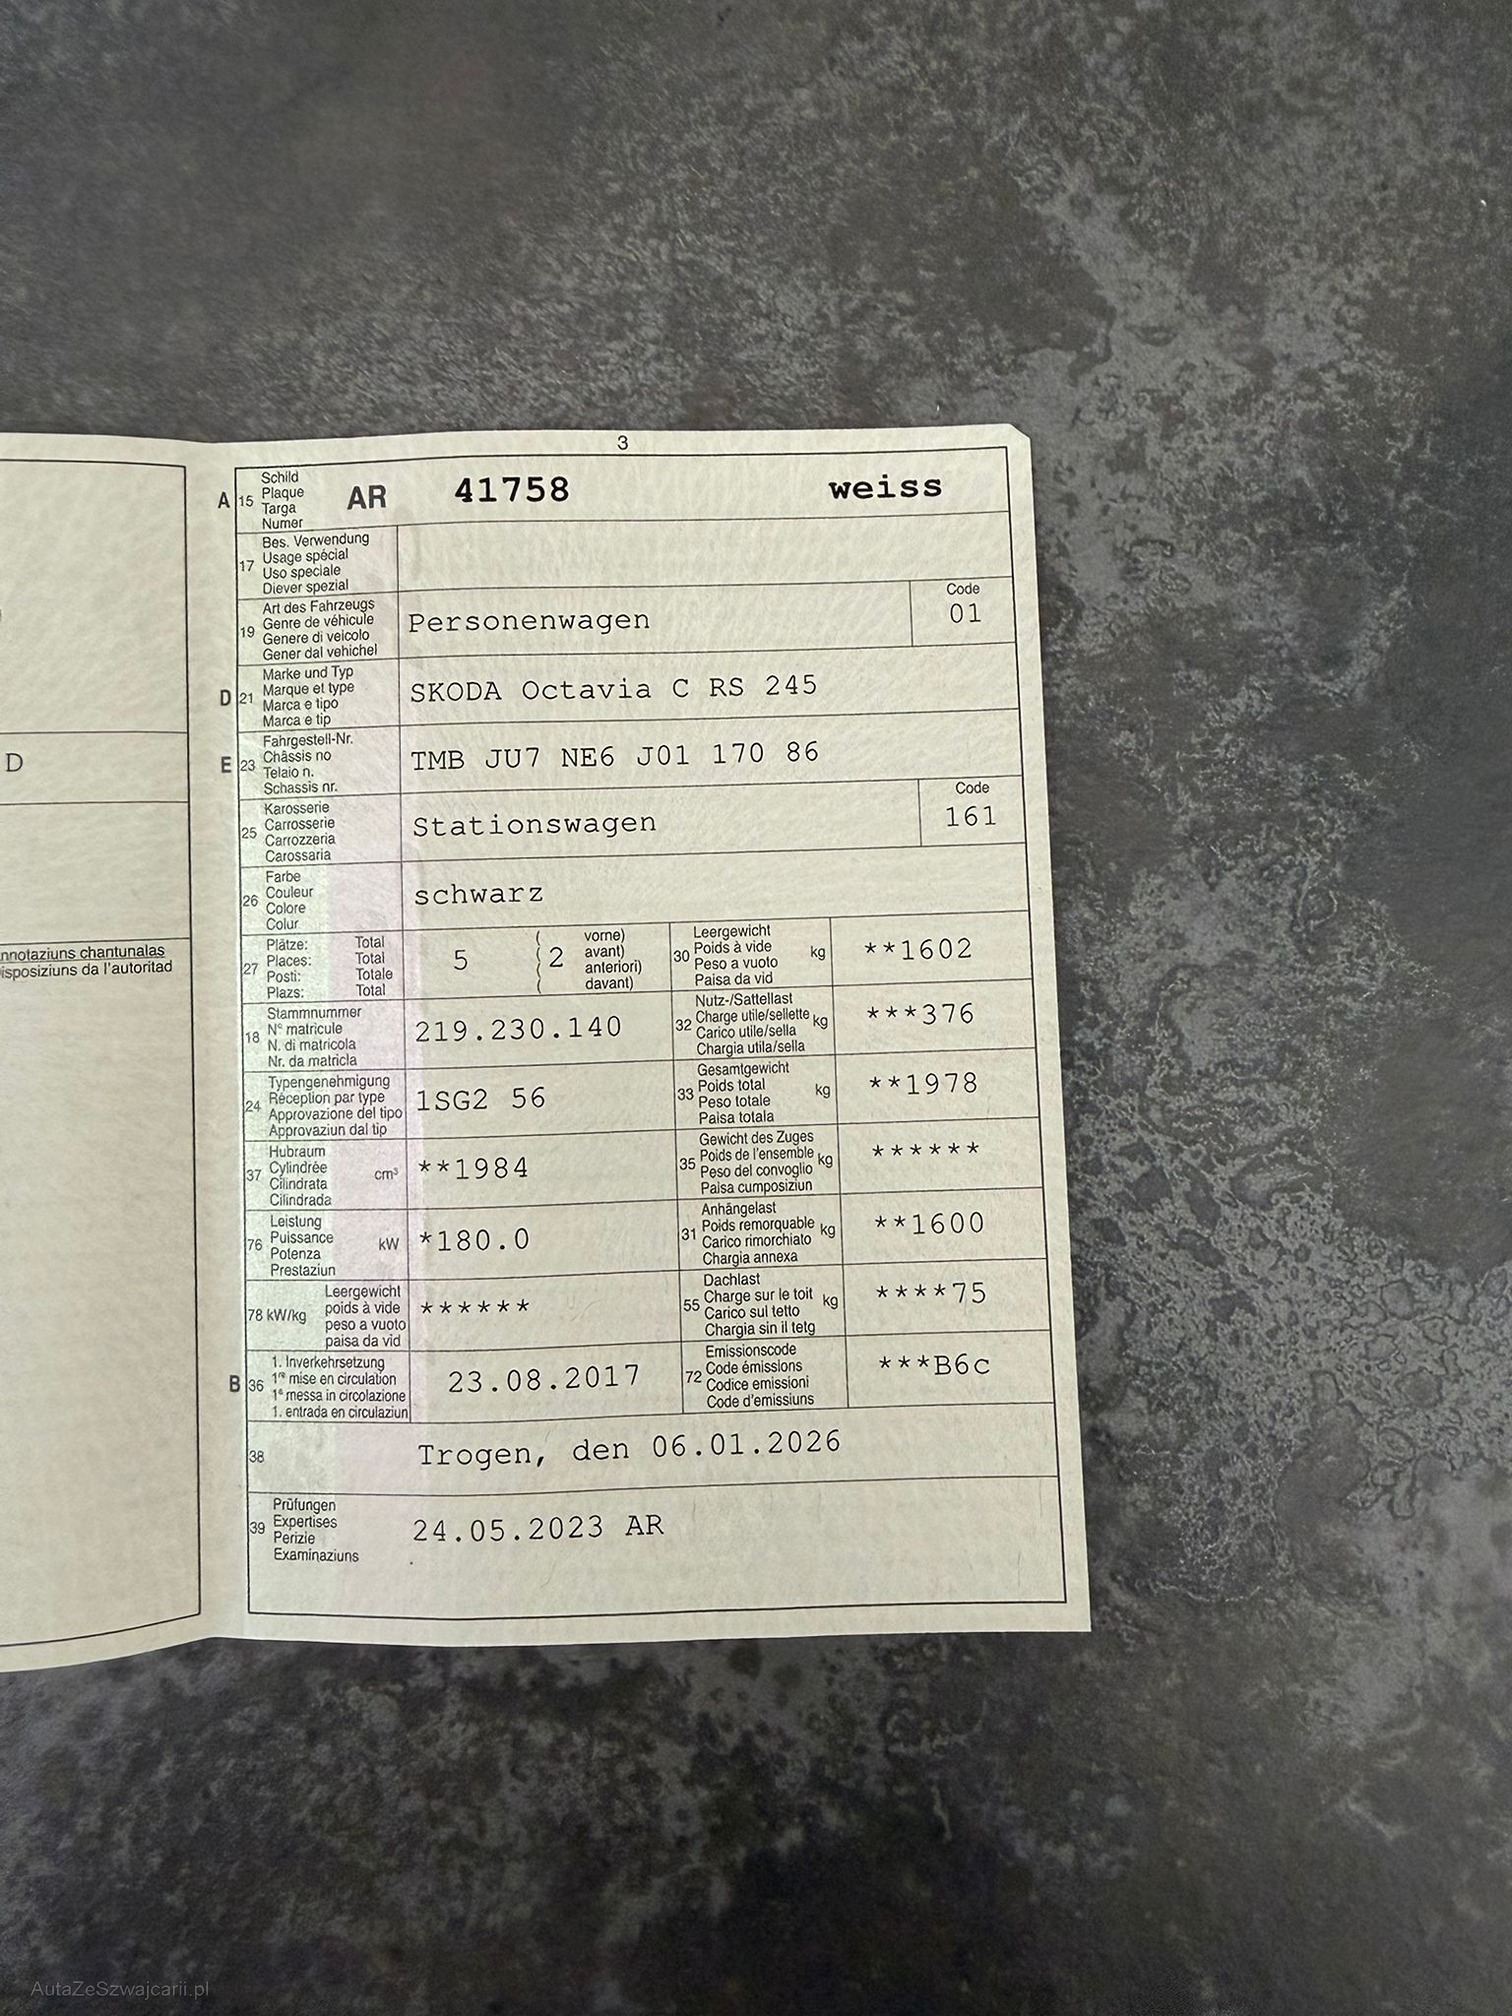 3
A 15 Schild
Plaque
Targa
Numer
AR 41758 weiss
17 Bes. Verwendung
Usage spécial
Uso speciale
Diever spezial
19 Art des Fahrzeugs
Genre de véhicule
Genere di veicolo
Gener dal vehichel
Personenwagen
Code
01
D 21 Marke und Typ
Marque et type
Marca e tipo
Marca e tip
SKODA Octavia C RS 245
E 23 Fahrgestell-Nr.
Châssis no
Telaio n.
Schassis nr.
TMB JU7 NE6 J01 170 86
25 Karosserie
Carrosserie
Carrozzeria
Carossaria
Stationswagen
Code
161
26 Farbe
Couleur
Colore
Colur
schwarz
27 Plätze: Total
Places: Total
Posti: Totale
Plazs: Total
5 ( 2 vorne)
( avant)
( anteriori)
( davant)
30 Leergewicht
Poids à vide kg
Peso a vuoto
Paisa da vid
**1602
18 Stammnummer
N° matricule
N. di matricola
Nr. da matricla
219.230.140
32 Nutz-/Sattellast
Charge utile/sellette kg
Carico utile/sella
Chargia utila/sella
***376
24 Typengenehmigung
Réception par type
Approvazione del tipo
Approvaziun dal tip
1SG2 56
33 Gesamtgewicht
Poids total kg
Peso totale
Paisa totala
**1978
37 Hubraum
Cylindrée cm³
Cilindrata
Cilindrada
**1984
35 Gewicht des Zuges
Poids de l'ensemble kg
Peso del convoglio
Paisa cumposiziun
******
76 Leistung
Puissance kW
Potenza
Prestaziun
*180.0
31 Anhängelast
Poids remorquable kg
Carico rimorchiato
Chargia annexa
**1600
78 kW/kg Leergewicht
poids à vide
peso a vuoto
paisa da vid
******
55 Dachlast
Charge sur le toit kg
Carico sul tetto
Chargia sin il tetg
****75
B 36 1. Inverkehrsetzung
1re mise en circulation
1a messa in circolazione
1. entrada en circulaziun
23.08.2017
72 Emissionscode
Code émissions
Codice emissioni
Code d'emissiuns
***B6c
38 Trogen, den 06.01.2026
39 Prüfungen
Expertises
Perizie
Examinaziuns
24.05.2023 AR
D
nnotaziuns chantunalas
isposiziuns da l'autoritad
AutaZeSzwajcarii.pl